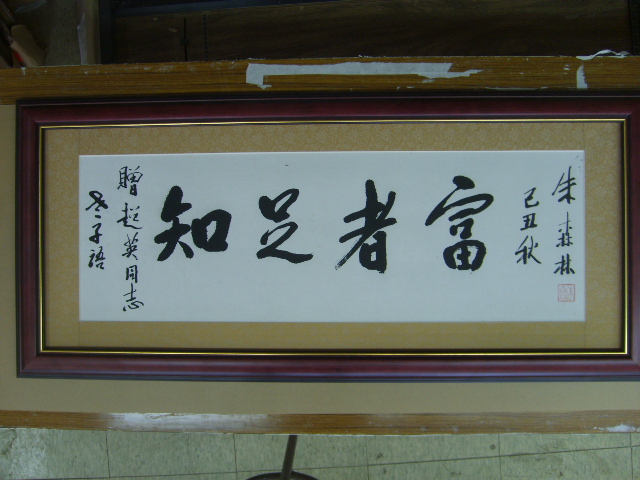 知足者富
老子语
赠赵英同志
己丑秋
朱森林